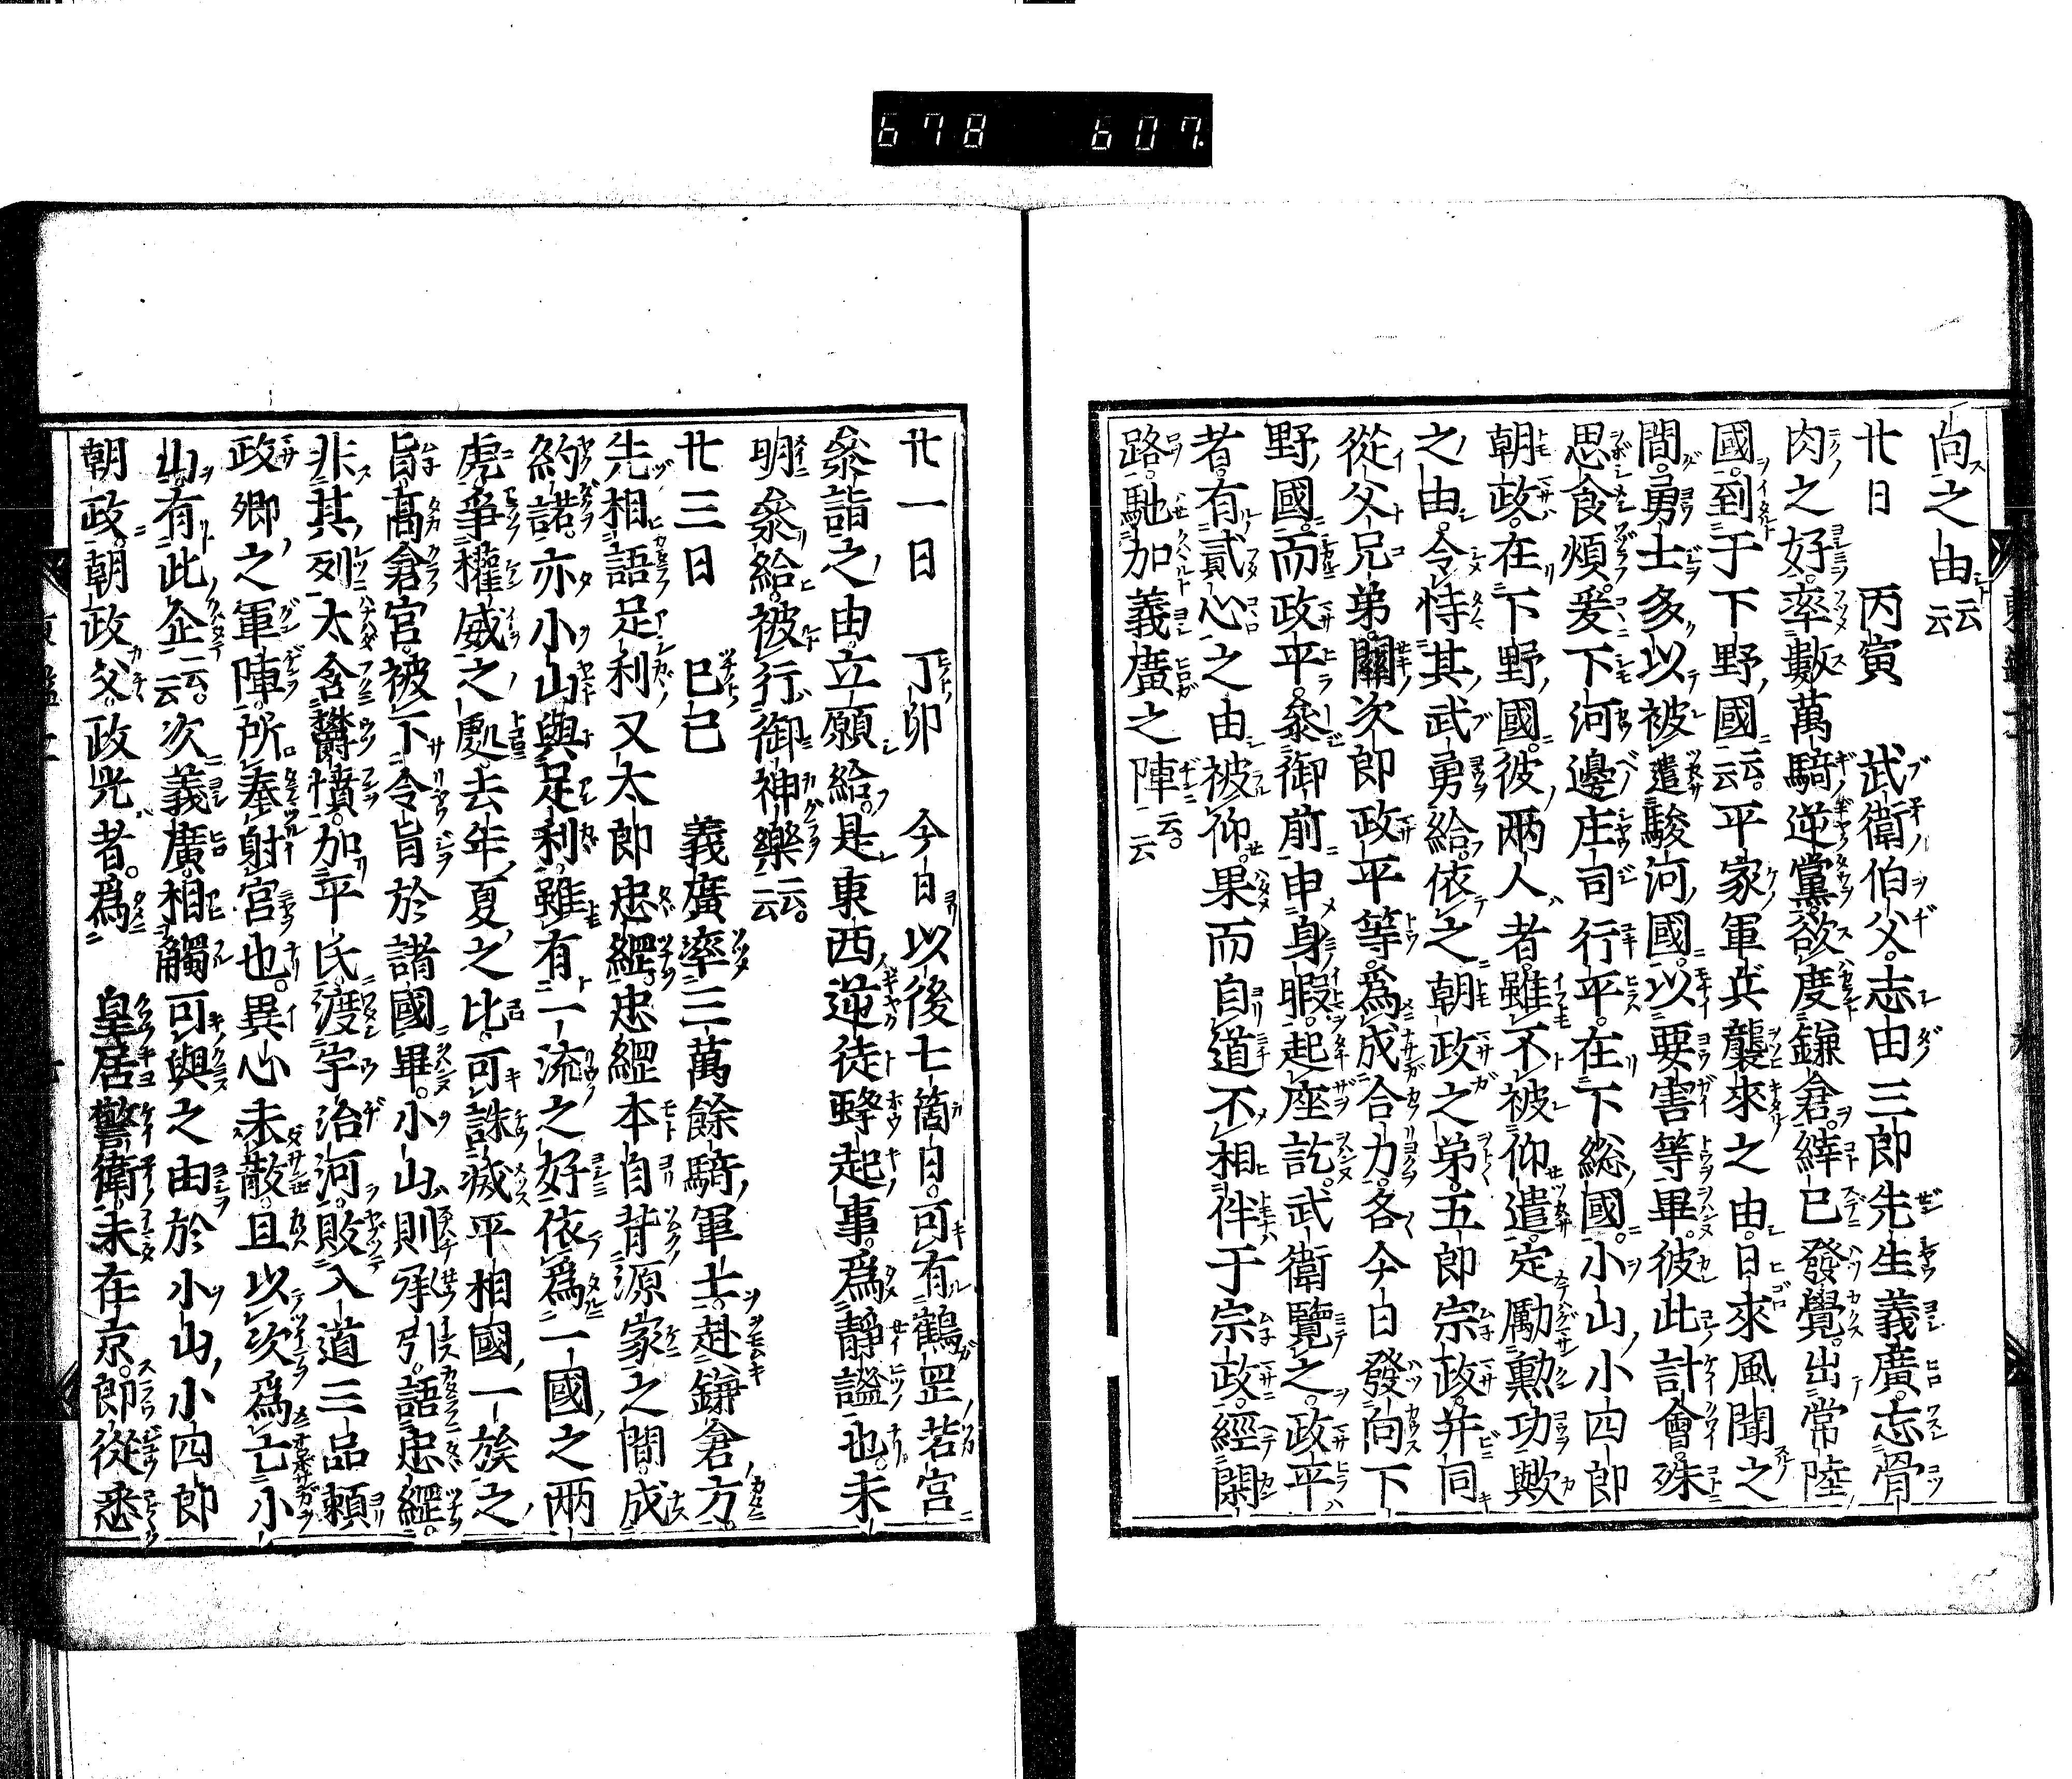 678 607.
向之由云云
廿日 丙寅 武衛伯父志由三郎先生義廣忘骨
肉之好率數萬騎逆黨欲度鎌倉縡已發覺出常陸
國到于下野國云云平家軍兵襲來之由日來風聞之
間勇士多以被遣駿河國以要害等畢彼此計會殊
思食煩爰下河邊庄司行平在下総國小山小四郎
朝政在下野國彼兩人者雖不被仰遣定勵勲功歟
之由令恃其武勇給依之朝政之弟五郎宗政并同
從父兄弟關次郎政平等爲成合力各今日發向下
野國而政平叅御前申身暇起座訖武衛覽之政平
者有貳心之由被仰果而自道不相伴于宗政經閑
路馳加義廣之陣云云
廿一日 丁卯 今日以後七箇日可有鶴罡若宮
叅詣之由立願給是東西逆徒蜂起事爲靜謐也未
明叅給被行御神樂云云
廿三日 己巳 義廣率三萬餘騎軍士赴鎌倉方
先相語足利又太郎忠綱忠綱本自背源家之間成
約諾亦小山與足利雖有一流之好依爲一國之兩
虎爭權威之處去年夏之比可誅滅平相國一族之
旨髙倉宮被下令旨於諸國畢小山則承引語忠綱
非其列太含欝憤加平氏渡宇治河敗入道三品賴
政卿之軍陣所奉射宮也異心未散且以次爲亡小
山有此企云云次義廣相觸可與之由於小山小四郎
朝政朝政父政光者爲 皇居警衛未在京郎從悉